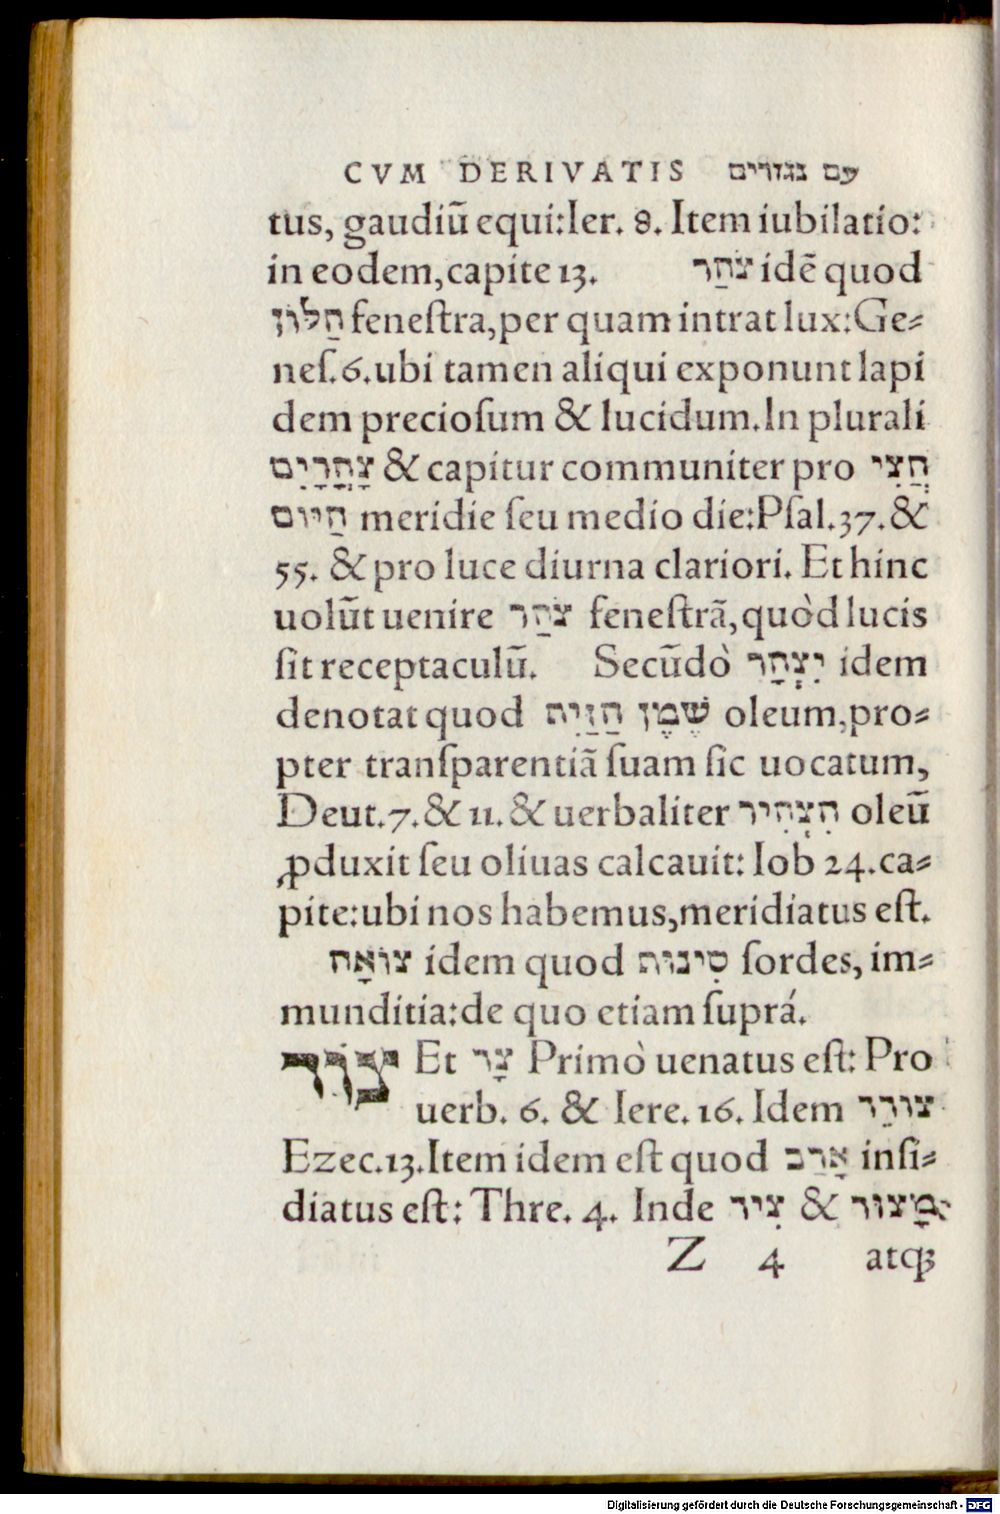 CVM DERIVATIS עם נגזרים
tus, gaudiū equi:Ier. 8. Item iubilatio:
in eodem,capite 13. צֹהַר idē quod
חַלּוֹן feneſtra,per quam intrat lux:Ge⸗
neſ.6.ubi tamen aliqui exponunt lapi
dem precioſum & lucidum.In plurali
צָהֳרַיִם & capitur communiter pro חֲצִי
הַיּוֹם meridie ſeu medio die:Pſal.37.&
55. & pro luce diurna clariori. Et hinc
uolūt uenire צֹהַר feneſtrā,quòd lucis
ſit receptaculū. Secūdò יִצְהָר idem
denotat quod שֶׁמֶן הַזַּיִת oleum,pro⸗
pter tranſparentiā ſuam ſic uocatum,
Deut.7.& 11.& uerbaliter הִצְהִיר oleū
ꝓduxit ſeu oliuas calcauit: Iob 24.ca⸗
pite:ubi nos habemus,meridiatus eſt.
צוֹאָה idem quod סִינוּת ſordes, im⸗
munditia:de quo etiam ſuprá.
צוּד Et צָד Primò uenatus eſt: Pro
uerb. 6. & Iere. 16. Idem צוֹדֵד
Ezec.13.Item idem eſt quod אָרַב inſi⸗
diatus eſt: Thre. 4. Inde צַיִד & מָצוֹד
Z 4 atqꝫ
Digitalisierung gefördert durch die Deutsche Forschungsgemeinschaft - DFG